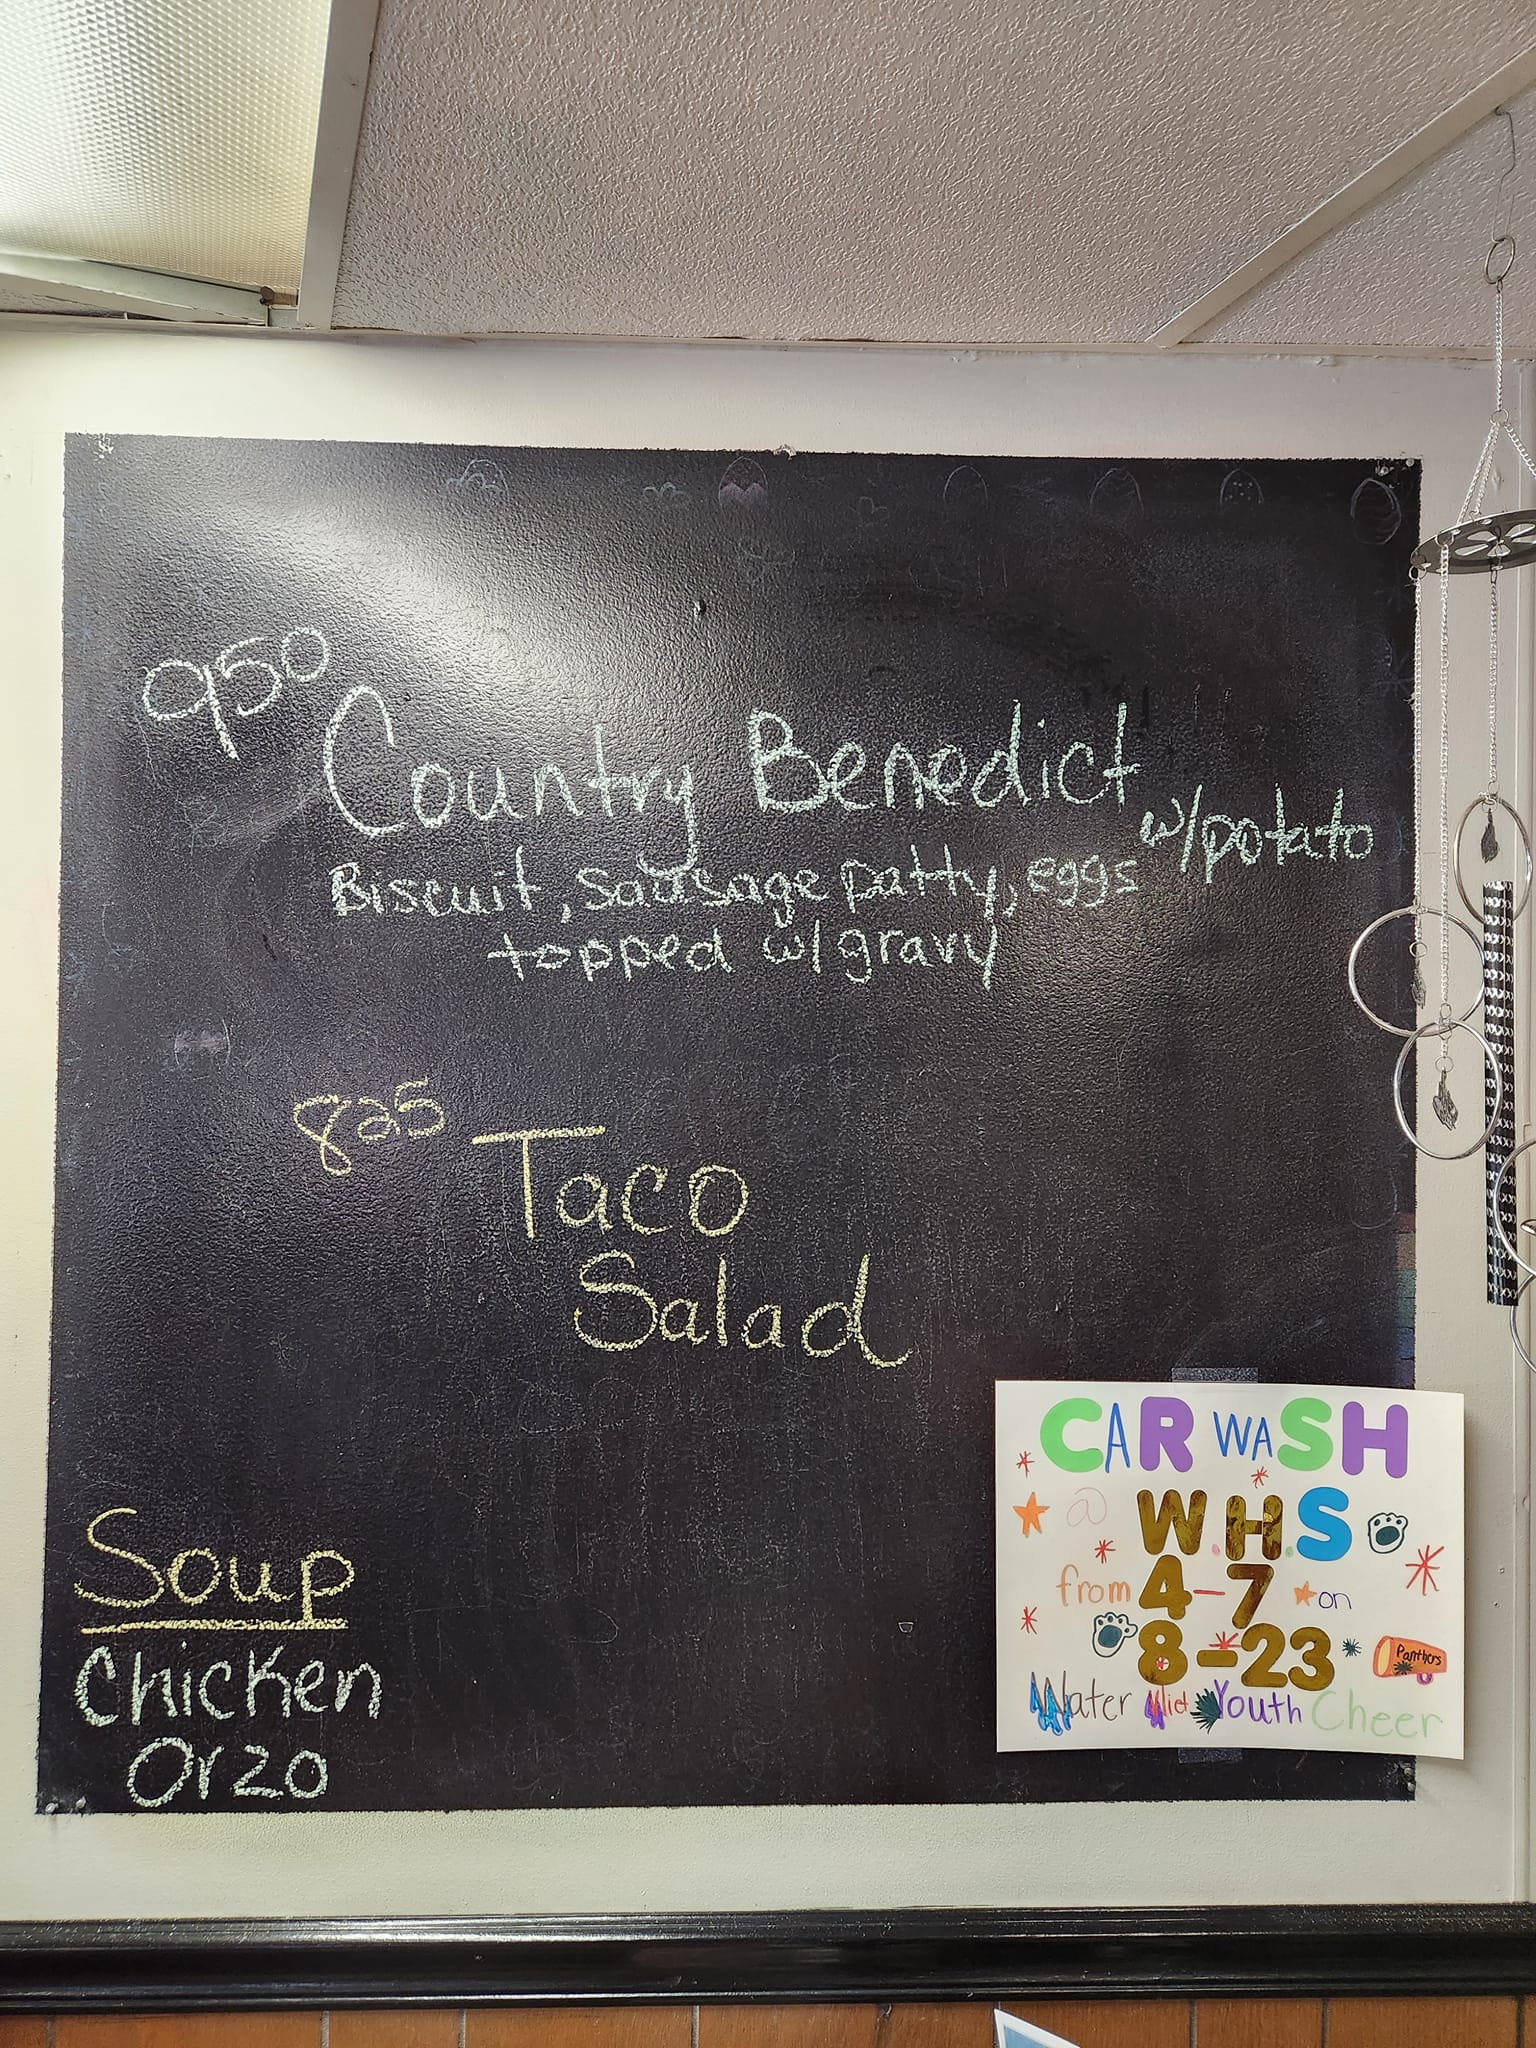 950
Country Benedict
w/potato
Biscuit, sausage patty, eggs
topped w/ gravy
825
Taco
Salad
Soup
Chicken
Orzo
CAR WASH
@ W.H.S
from 4-7 on
8-23
Panthers
Water Vliet Youth Cheer